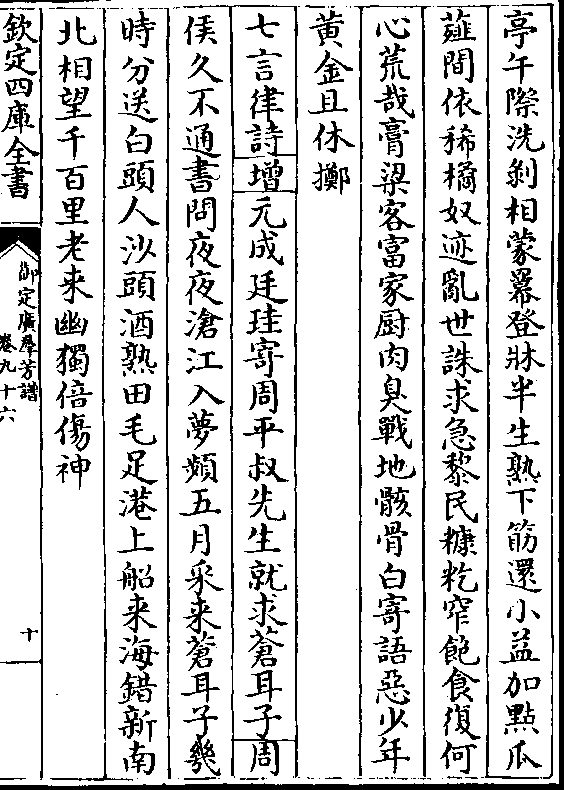 亭午際洗剝相蒙羃登牀半生熟下筯還小益加㸃瓜
薤間依稀橘奴迹亂世誅求急黎民糠籺窄飽食復何
心荒哉膏粱客富家厨肉臭戰地骸骨白寄語惡少年
黄金且休擲
七言律詩增元成廷珪寄周平叔先生就求蒼耳子周
侯久不通書問夜夜滄江入夢頻五月采来蒼耳子幾
時分送白頭人沙頭酒熟田毛足港上船来海錯新南
北相望千百里老来幽獨倍傷神
欽定四庫全書
御定廣羣芳譜
卷九十六
十